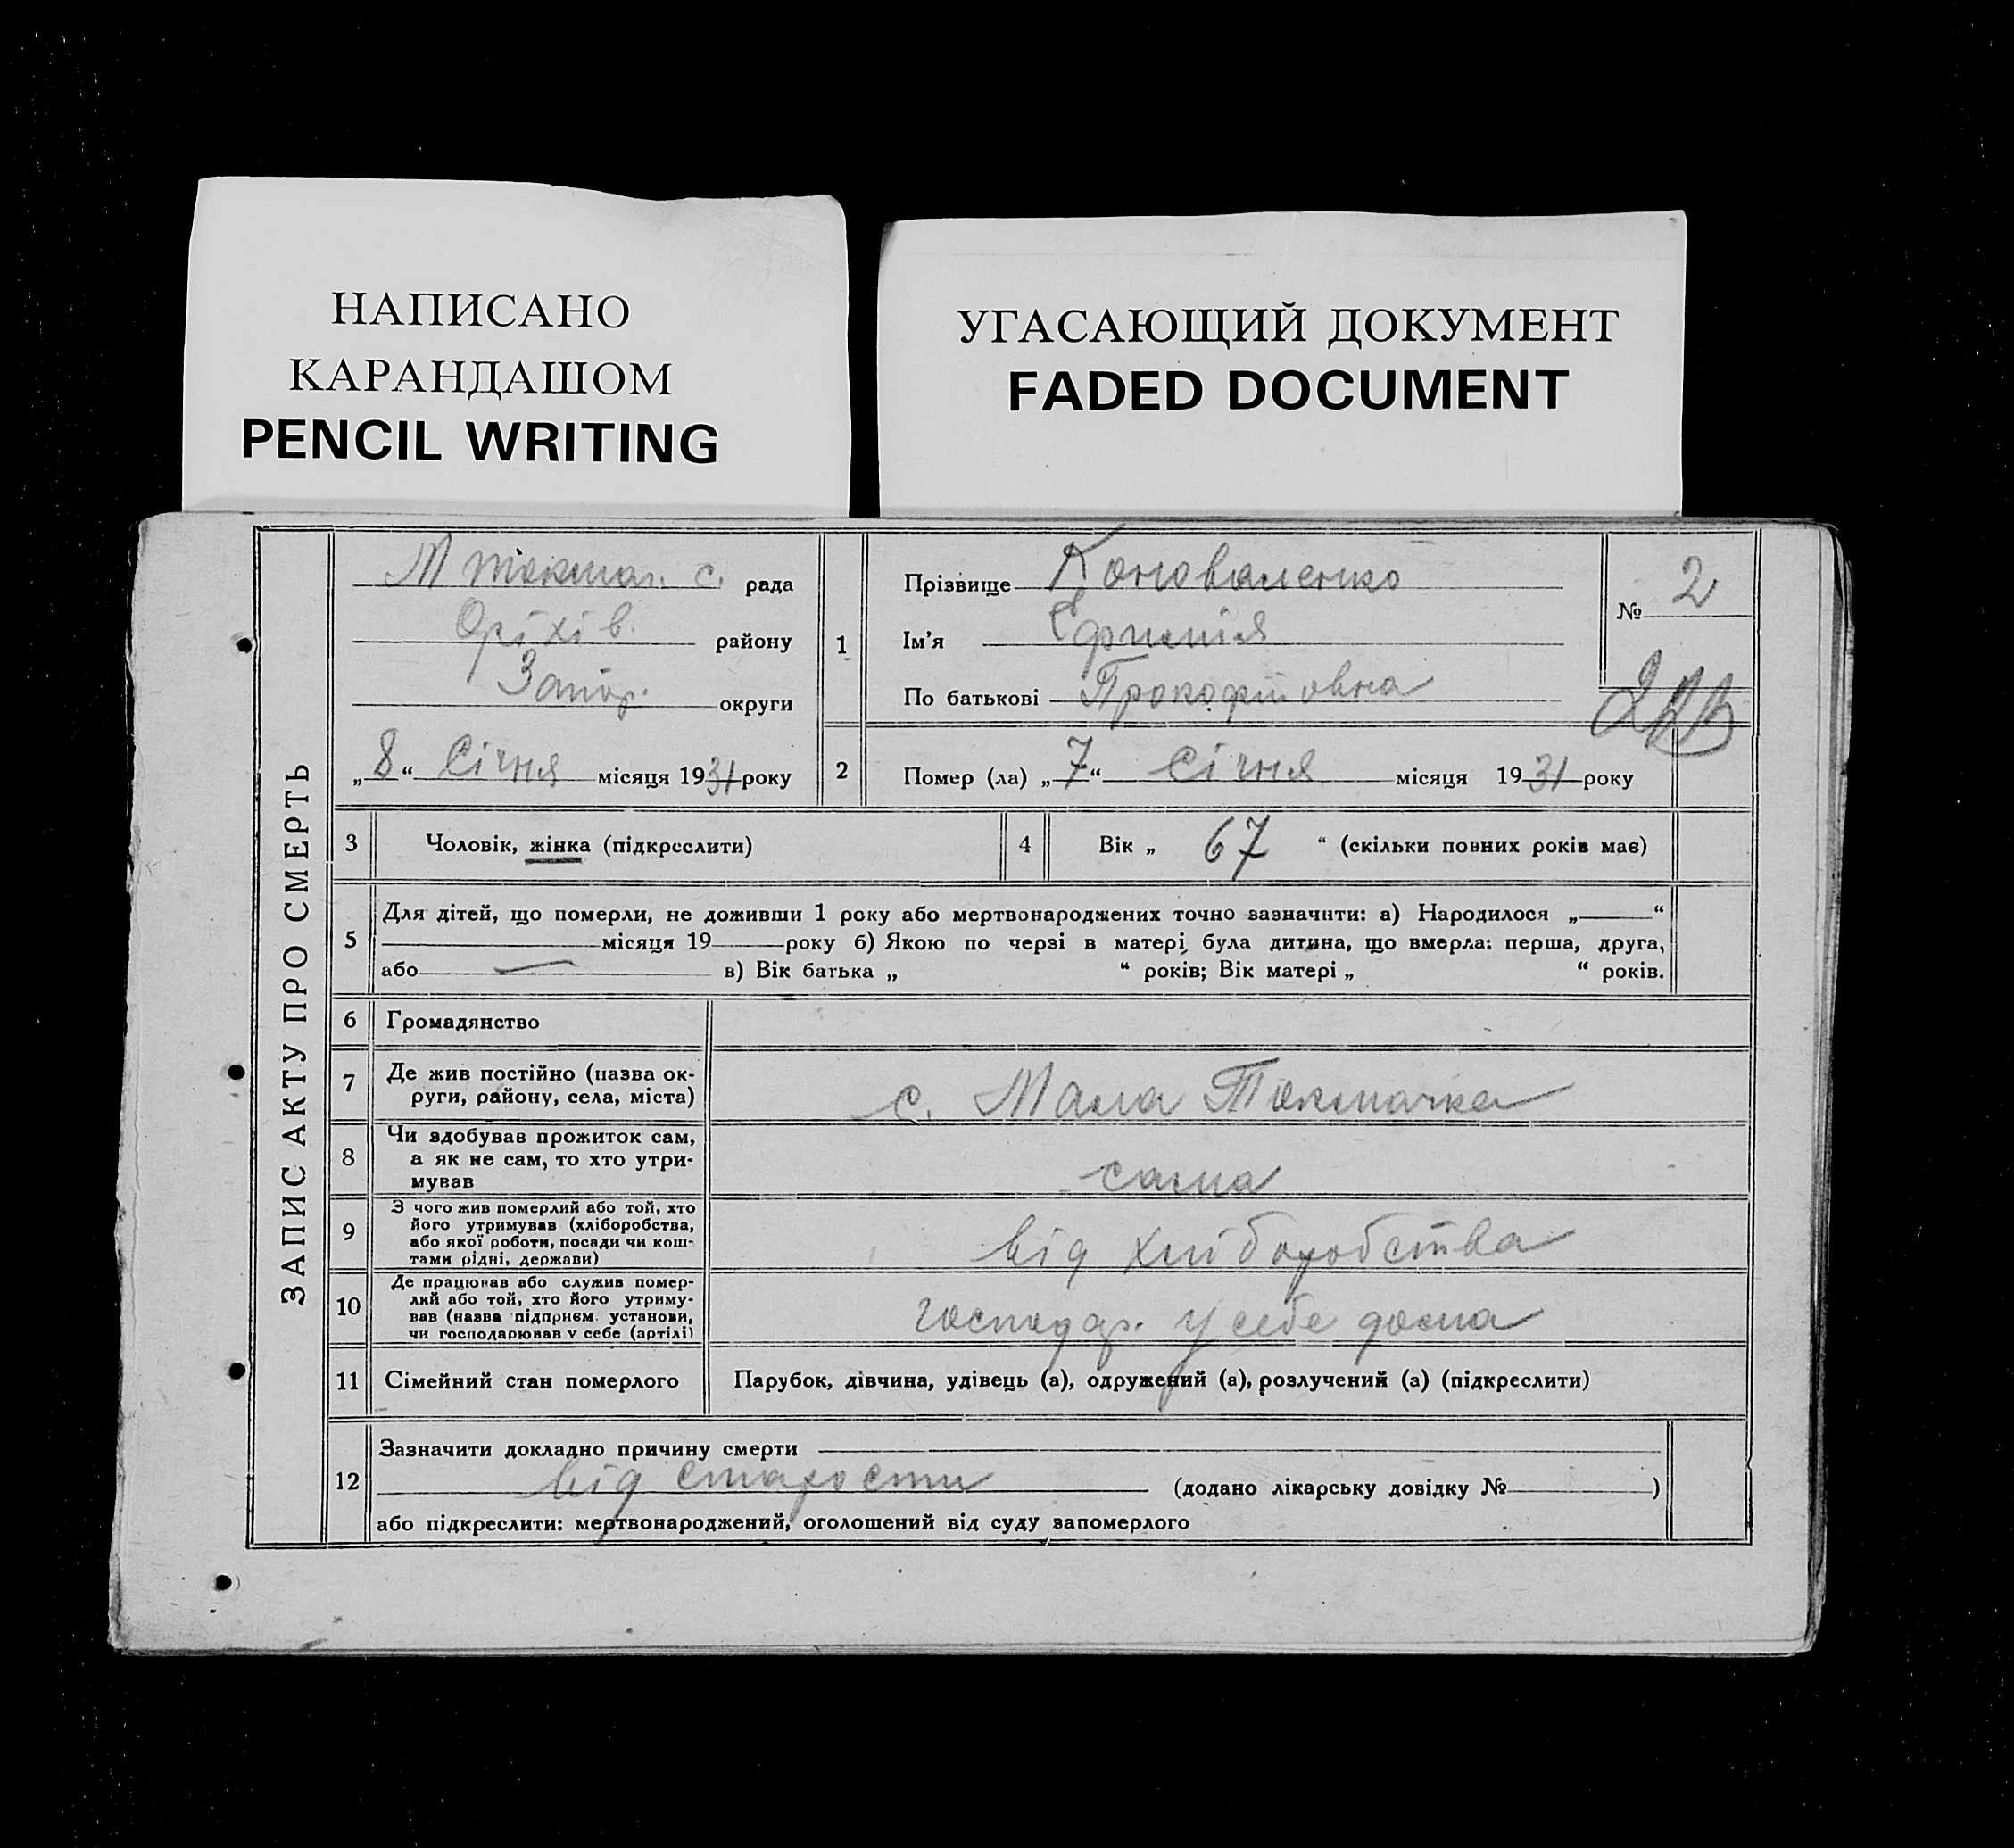 НАПИСАНО
КАРАНДАШОМ
PENCIL WRITING
УГАСАЮЩИЙ ДОКУМЕНТ
FADED DOCUMENT
ЗАПИС АКТУ ПРО СМЕРТЬ
М Токмач. с. рада
Оріхів. району
Запор. округи
„8“ Січня місяця 1931 року
1
Прізвище Коноваленко
Ім’я Єфимія
По батькові Прокофійовна
№ 2
2
Помер (ла) „7“ Січня місяця 1931 року
3
Чоловік, жінка (підкреслити)
4
Вік „ 67 “ (скільки повних років має)
5
Для дітей, що померли, не доживши 1 року або мертвонароджених точно зазначити: а) Народилося „ “
місяця 19 року б) Якою по черзі в матері була дитина, що вмерла: перша, друга,
або — в) Вік батька „ “ років; Вік матері „ “ років.
6
Громадянство
7
Де жив постійно (назва ок-
руги, району, села, міста)
с. Мала Токмачка
8
Чи здобував прожиток сам,
а як не сам, то хто утри-
мував
сама
9
З чого жив померлий або той, хто
його утримував (хліборобства,
або якої роботи, посади чи кош-
тами рідні, держави)
від хліборобства
10
Де працював або служив помер-
лий або той, хто його утриму-
вав (назва підприєм. установи,
чи господарював у себе (артілі)
господар. у себе дома
11
Сімейний стан померлого
Парубок, дівчина, удівець (а), одружений (а), розлучений (а) (підкреслити)
12
Зазначити докладно причину смерти
від старости (додано лікарську довідку № )
або підкреслити: мертвонароджений, оголошений від суду запомерлого